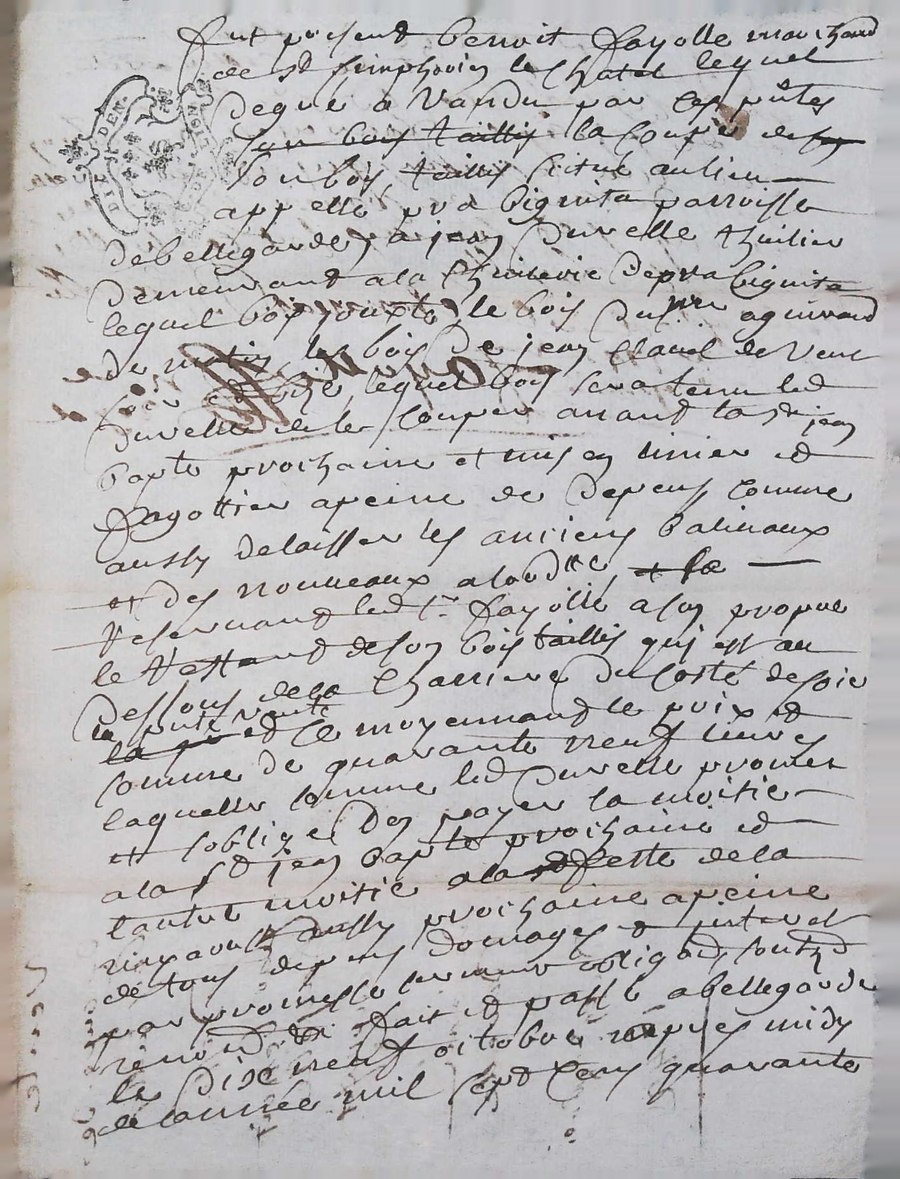 fut present benoit fayolle marchand
de st simphorien le Chatel lequel
de gré a vandu par ces pntes
son bois taillis la coupe de
son bois taillis situé au lieu
appellé pra bignita parroisse
de bellegarde a jean Duvelle thuilier
demeurant a la thuilerie de pra bignita
lequel bois jouxte le bois du
de matin le bois de jean Claud de vent
soir et bize lequel bois sera tenu led
Duvelle de le couper avant la st jean
bapte prochaine et mis en et
fagottier a peine de depens comme
aussy delaisser les anciens baliveaux
et des nouveaux a lordce et le
reservant led sr fayolle a son propre
le restand de son bois taillis qui est au
dessous de la Charriere du Costé de soir
la pnte vente
et ce moyennand le prix et
somme de quarante neuf livres
laquelle somme led Duvelle promet
et soblige den payer la moitié
a la st jean bapte prochaine et
lautre moitié a la feste de la
aussy prochaine a peine
de tous depens domages et interest
par promesse serment obligaon soubzon
renonon fait et passé a bellegarde
le Dixe neuf octobre apres midy
de lannée mil sept Cens quarante